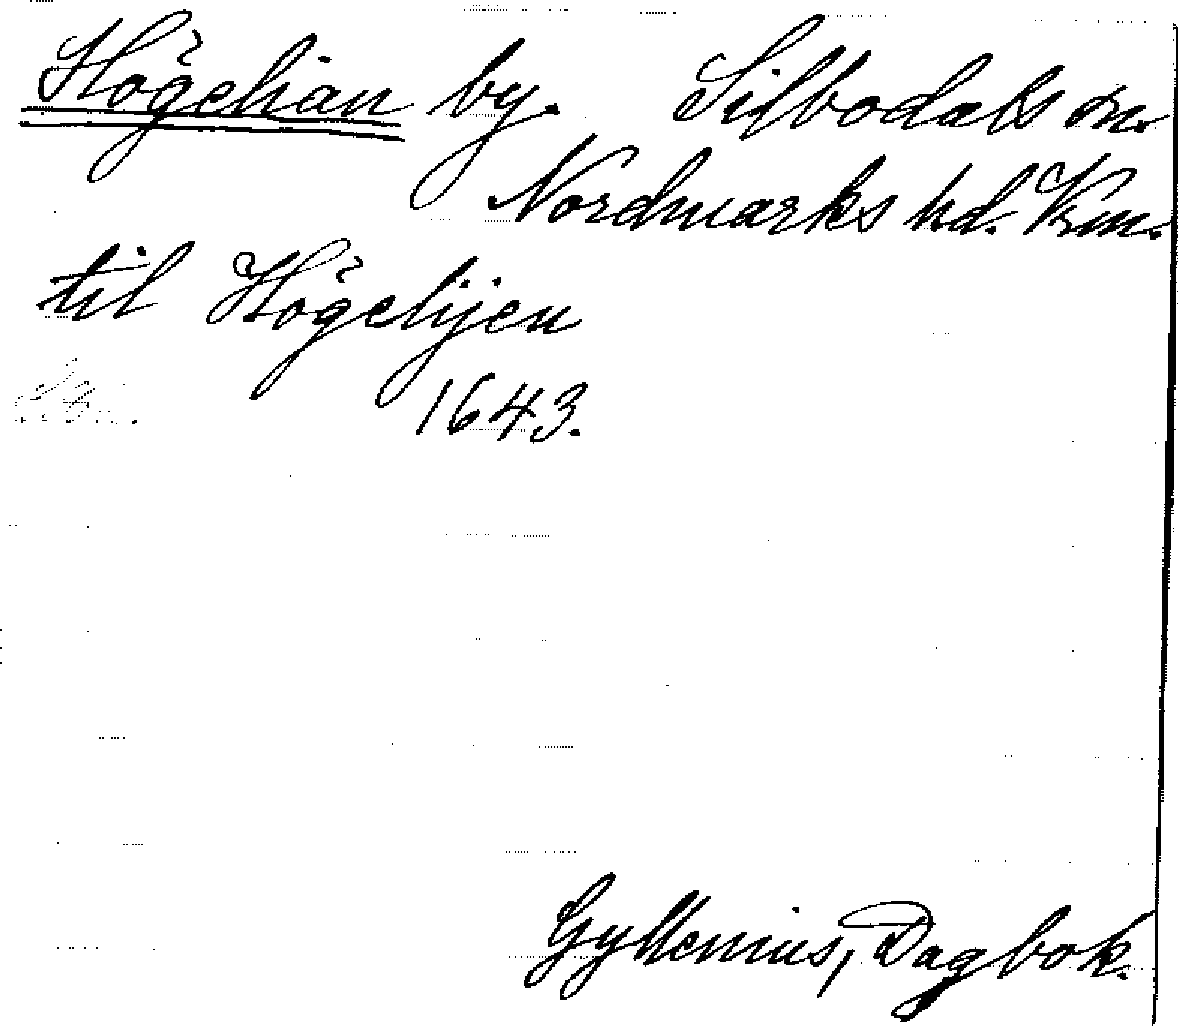 Högelian by. Silbodals sn.
Nordmarks hd. Vrm.
til Högelijen
1643.
Gyllenius, Dagbok.